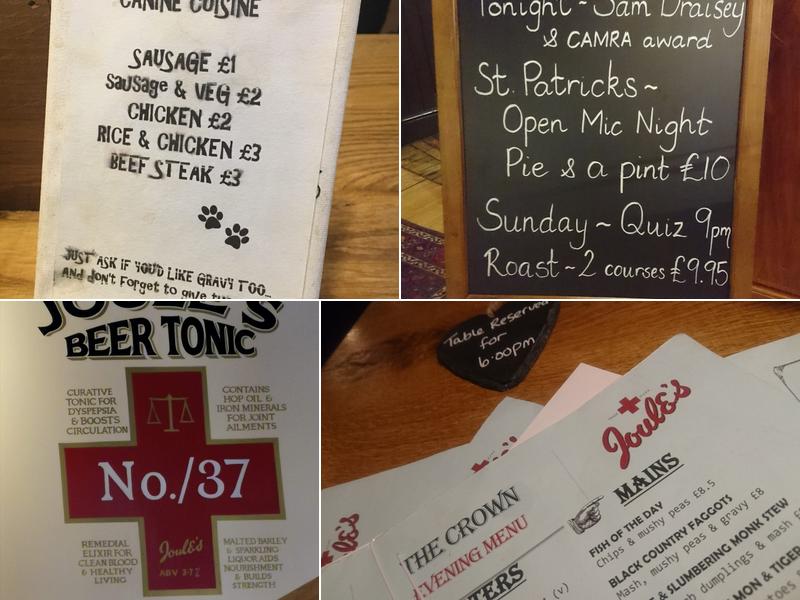 CANINE CUISINE
SAUSAGE £1
Sausage & VEG £2
CHICKEN £2
RICE & CHICKEN £3
BEEF STEAK £3
JUST ASK IF YOU'D LIKE GRAVY TOO...
AND don't Forget to give
Tonight ~ Sam Draisey
& CAMRA award
St. Patricks ~
Open Mic Night
Pie & a pint £10
Sunday ~ Quiz 9pm
Roast ~ 2 courses £9.95
JOULE'S
BEER TONIC
CURATIVE
TONIC FOR
DYSPEPSIA
& BOOSTS
CIRCULATION
CONTAINS
HOP OIL &
IRON MINERALS
FOR JOINT
AILMENTS
No./37
REMEDIAL
ELIXIR FOR
CLEAN BLOOD
& HEALTHY
LIVING
Joule's
ABV 3.7%
MALTED BARLEY
& SPARKLING
LIQUOR AIDS
NOURISHMENT
& BUILDS
STRENGTH
Table Reserved
for
6:00pm
Joule's
THE CROWN
EVENING MENU
MAINS
FISH OF THE DAY
Chips & mushy peas £8.5
BLACK COUNTRY FAGGOTS
Mash, mushy peas & gravy £8
& SLUMBERING MONK STEW
dumplings & mash
& TIGER
(v)